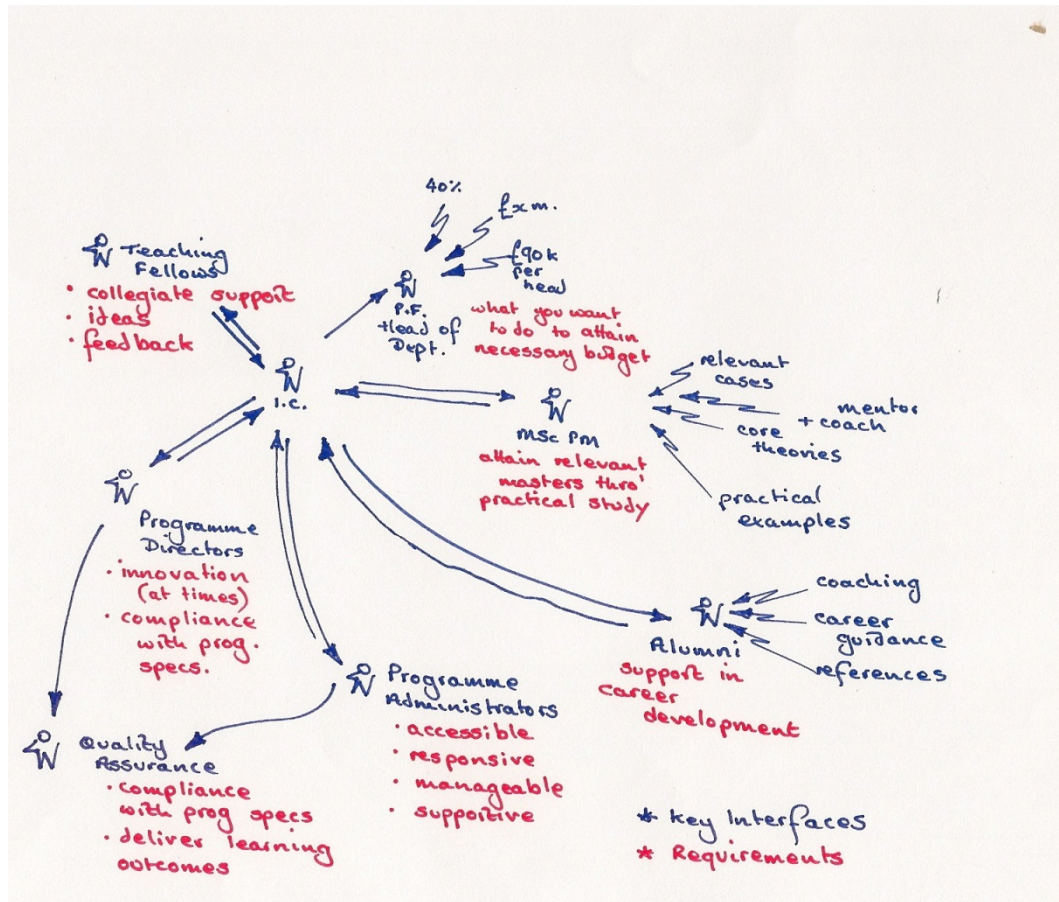 40%
£xm.
£90k
per
head
P.F.
Head of
Dept.
what you want
to do to attain
necessary budget
Teaching
Fellows
• collegiate support
• ideas
• feedback
I.C.
MSc PM
attain relevant
masters thro'
practical study
relevant
cases
mentor
+ coach
core
theories
practical
examples
Programme
Directors
• innovation
(at times)
• compliance
with prog.
specs.
Alumni
support in
career
development
coaching
career
guidance
references
Programme
Administrators
• accessible
• responsive
• manageable
• supportive
Quality
Assurance
• compliance
with prog specs
• deliver learning
outcomes
* Key Interfaces
* Requirements